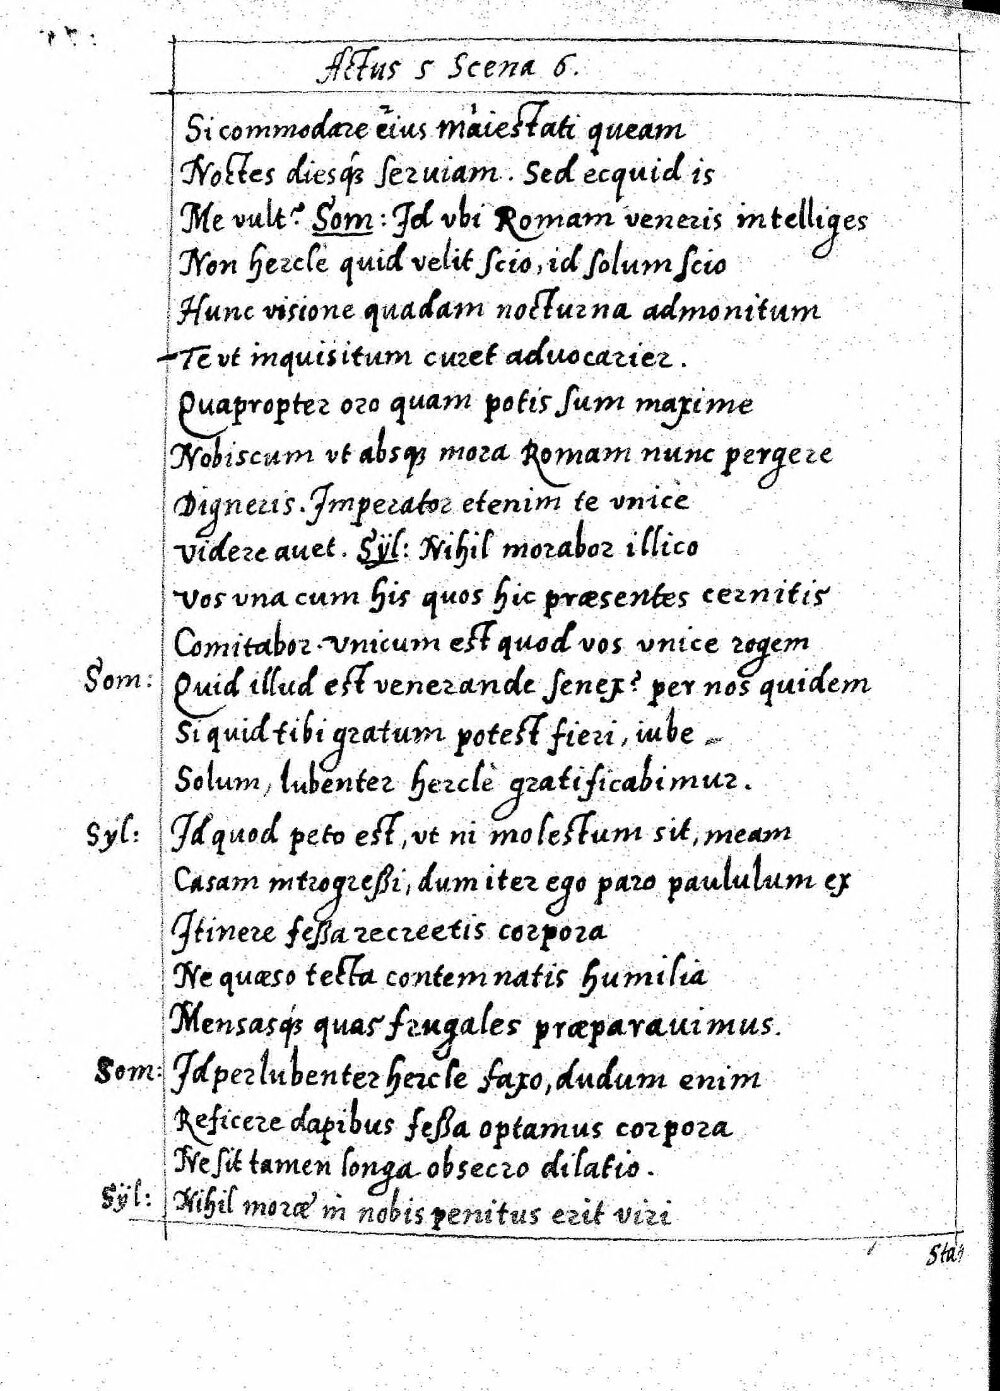 Actus 5 Scena 6.
Si commodare eius maiestati queam
Noctes diesq́ʒ ſeruiam. Sed ecquid is
Me vult? Som: Id vbi Romam veneris intelliges
Non hercle quid velit ſcio, id ſolum ſcio
Hunc visione quadam nocturna admonitum
Te vt inquisitum curet aduocarier.
Quapropter oro quam potis ſum maxime
Nobiscum vt absqʒ mora Romam nunc pergere
Digneris. Imperator etenim te vnicè
videre auet. Sÿl: Nihil morabor illico
vos vna cum his quos hic præsentes cernitis
Comitabor. vnicum est quod vos vnice rogem
Som: Quid illud est venerande ſenex? per nos quidem
Si quid tibi gratum potest fieri, iube
Solum, lubenter herclè gratificabimur.
Syl: Id quod peto est, vt ni molestum sit, meam
Casam introgreßi, dum iter ego paro paululum ex
Itinere feßa recreetis corpora
Ne quæso tecta contemnatis humilia
Mensasq́ʒ quas frugales præparauimus.
Som: Id perlubenter hercle faxo, dudum enim
Reficere dapibus feßa optamus corpora
Ne ſit tamen longa obsecro dilatio.
Sÿl: Nihil moræ in nobis penitus erit viri